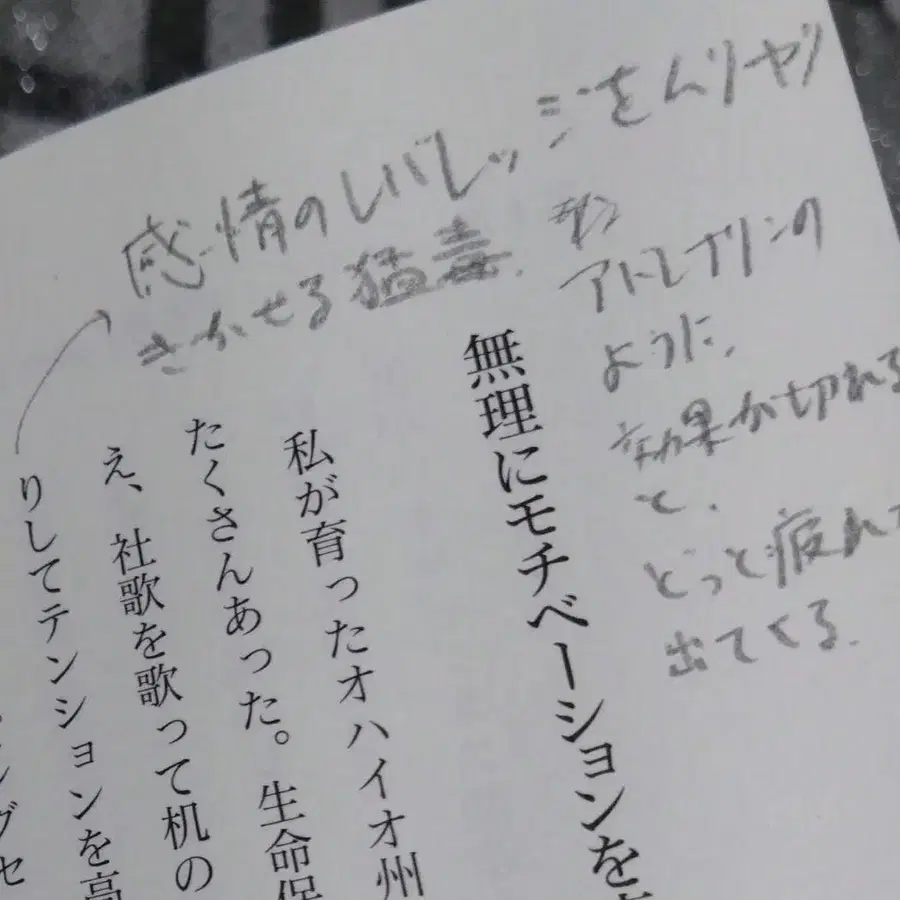 感情のレバレッジをムリヤリ
きかせる猛毒.
アドレナリンの
ように、
効果が切れる
と、
どっと疲れ
出てくる.
無理にモチベーションを
私が育ったオハイオ州
たくさんあった。生命保
え、社歌を歌って机の
りしてテンションを高